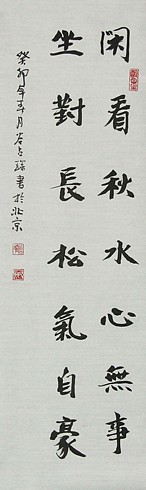 閑看秋水心無事
坐對長松氣自豪
癸卯年五月谷占琢書於北京